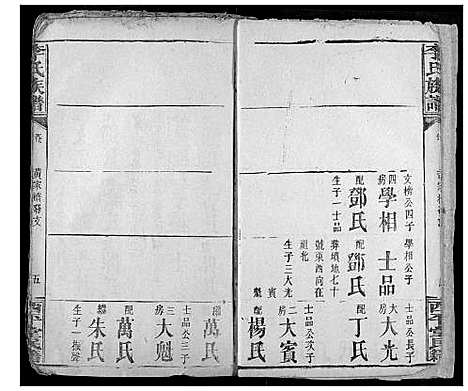 李氏族譜
文榜公四子
四房學相
配鄧氏
生子一士品
學相公子
士品
配鄧氏
葬墳地七十
號東西向在
祖杝
生子三大光
大賓
士品公長子
長房大光
配丁氏
士品公次子
二房大賓
配楊氏
李氏族譜
黃家橋裔支
五
西平堂
繼萬氏
士品公三子
三房大魁
配萬氏
繼朱氏
生子一
振聲